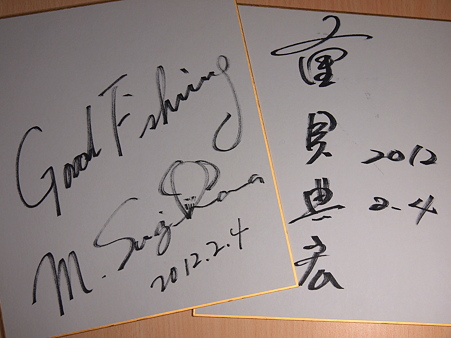 Good Fishing
M. Sugihara
2012.2.4
童
貝
典
宏
2012
2.4